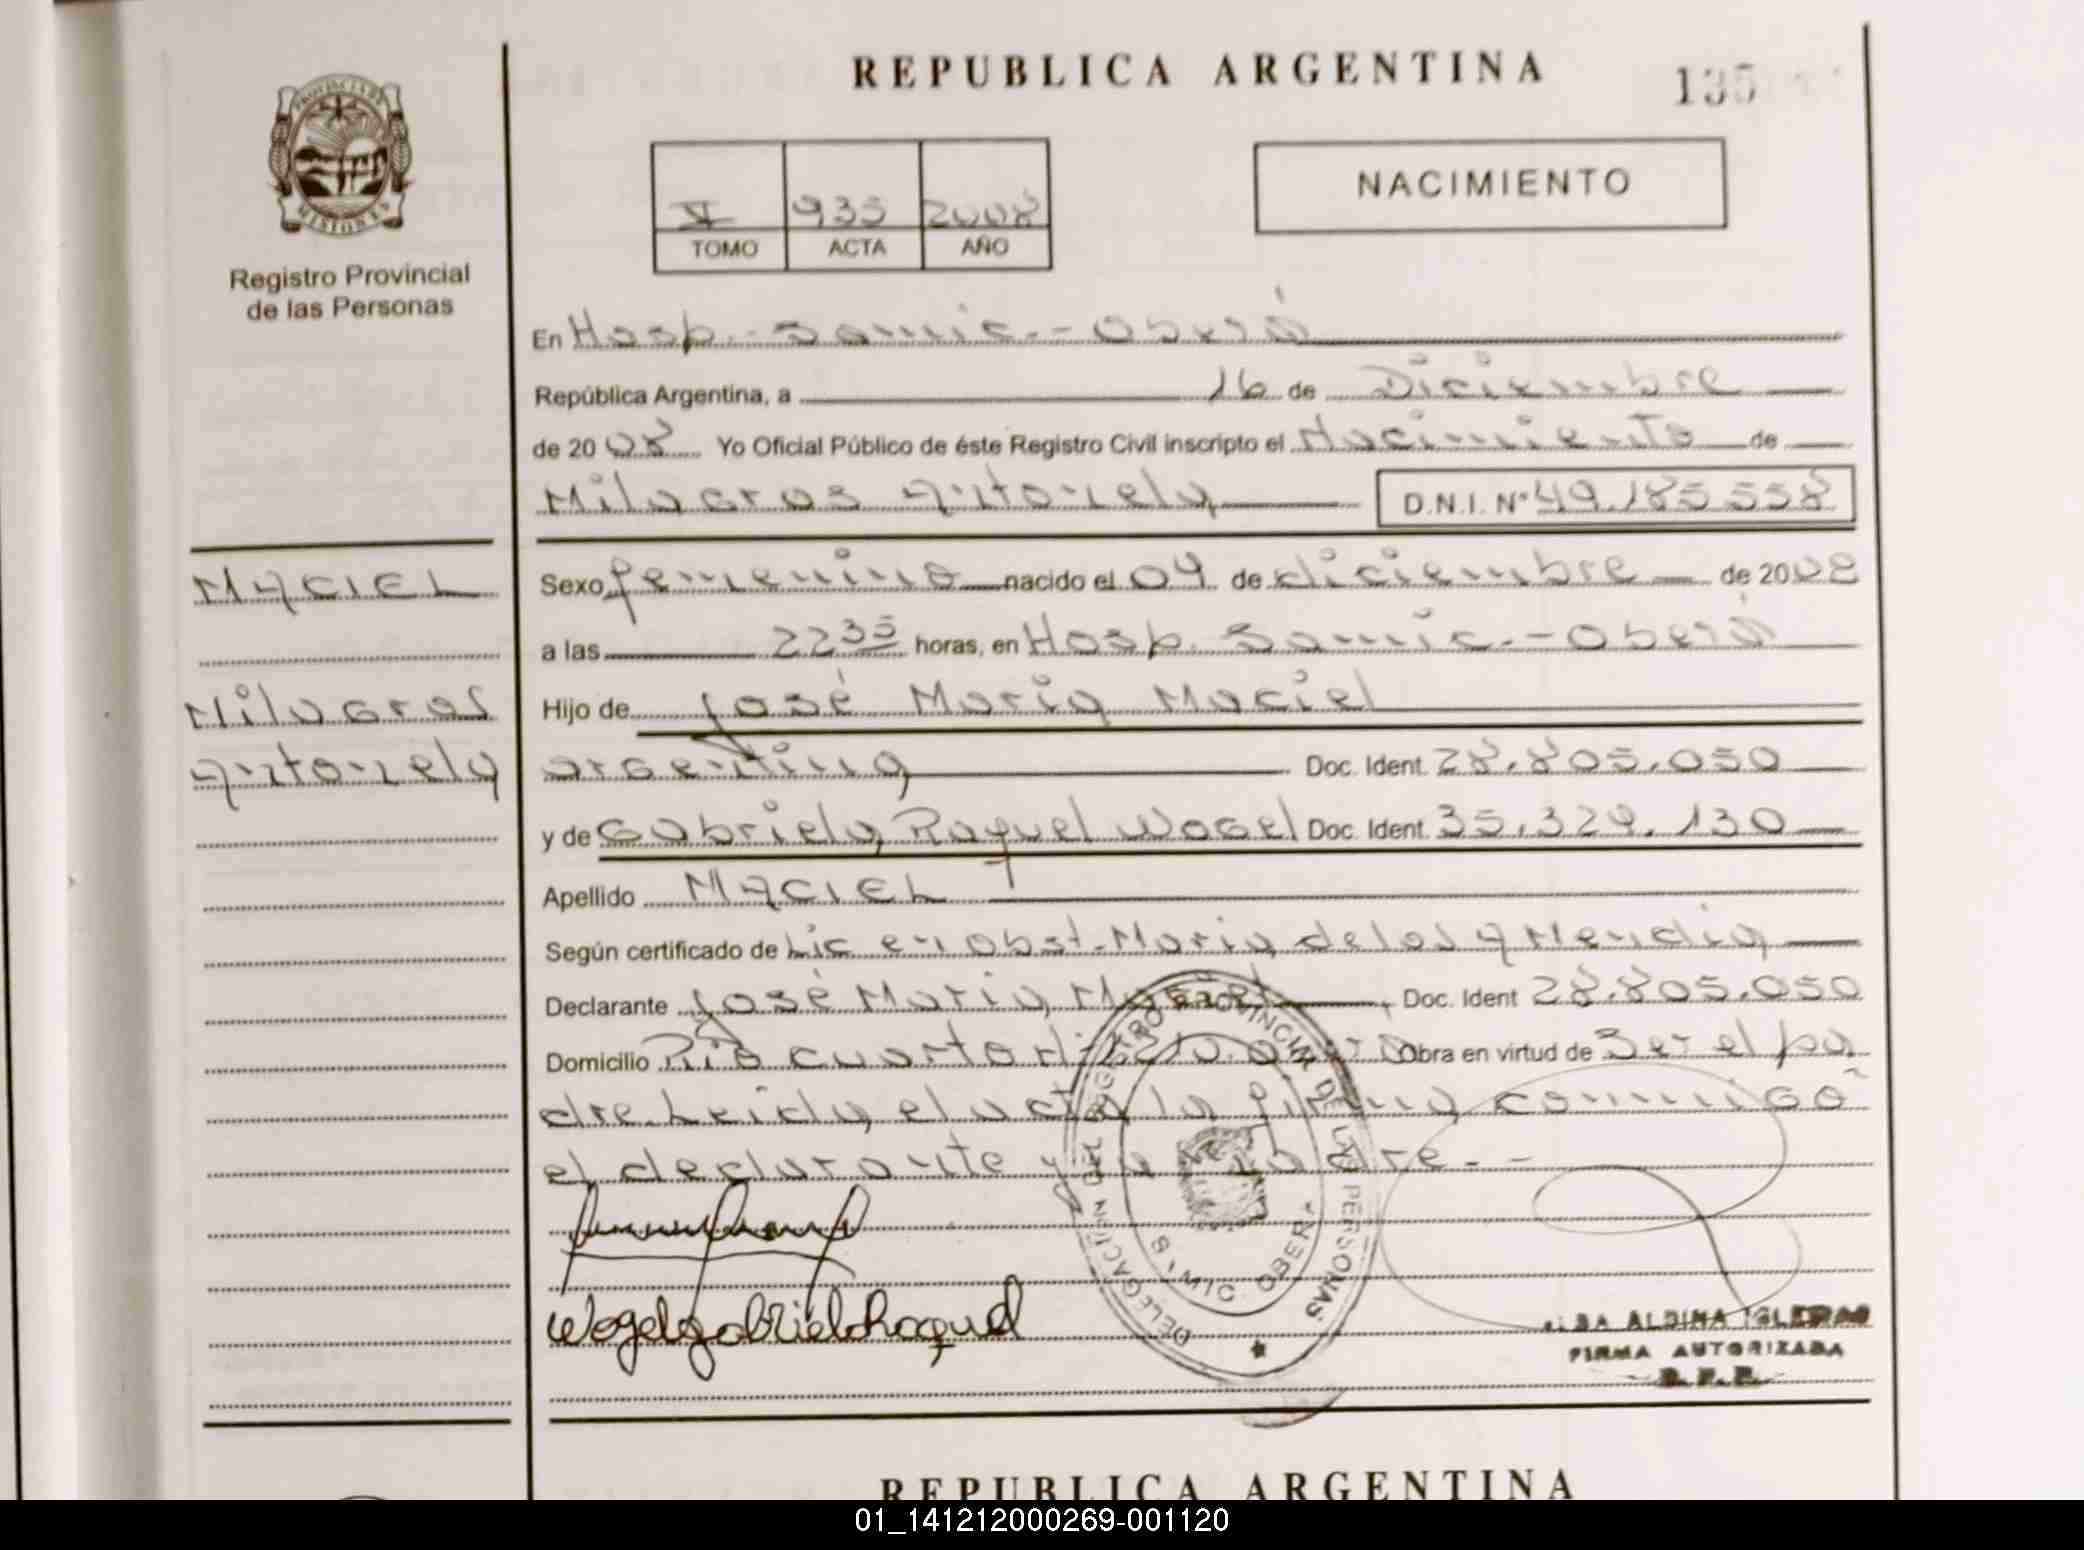 REPUBLICA ARGENTINA
135
PROVINCIA DE MISIONES
Registro Provincial
de las Personas
933 2008
TOMO ACTA AÑO
NACIMIENTO
En Hosp. Samic.-- Oberá
República Argentina, a 16 de Diciembre
de 2008 Yo Oficial Público de éste Registro Civil inscripto el Nacimiento de
Milagros Antonela D.N.I. Nº 49.185.538
MACIEL
Milagros
Antonela
Sexo femenino nacido el 04 de diciembre de 2008
a las 22 35 horas, en Hosp. Samic.-- Oberá
Hijo de José Maria Maciel
argentina Doc. Ident. 28.805.050
y de Gabriela Raquel Wogel Doc. Ident. 35.329.130
Apellido MACIEL
Según certificado de Lic en obst. Maria de los A
Declarante José Maria Maciel, Doc. Ident 28.805.050
Domicilio Río cuarto Oberá Obra en virtud de Ser el pa
dre. Leida el acta la firma conmigo
el declarante y la madre.--
Wogel gabriela Raquel
DELEGACIÓN DEL REGISTRO PROVINCIAL DE LAS PERSONAS
SAMIC OBERÁ
ALBA ALDINA IGLESIAS
FIRMA AUTORIZADA
R. P. P.
REPUBLICA ARGENTINA
01_141212000269-001120